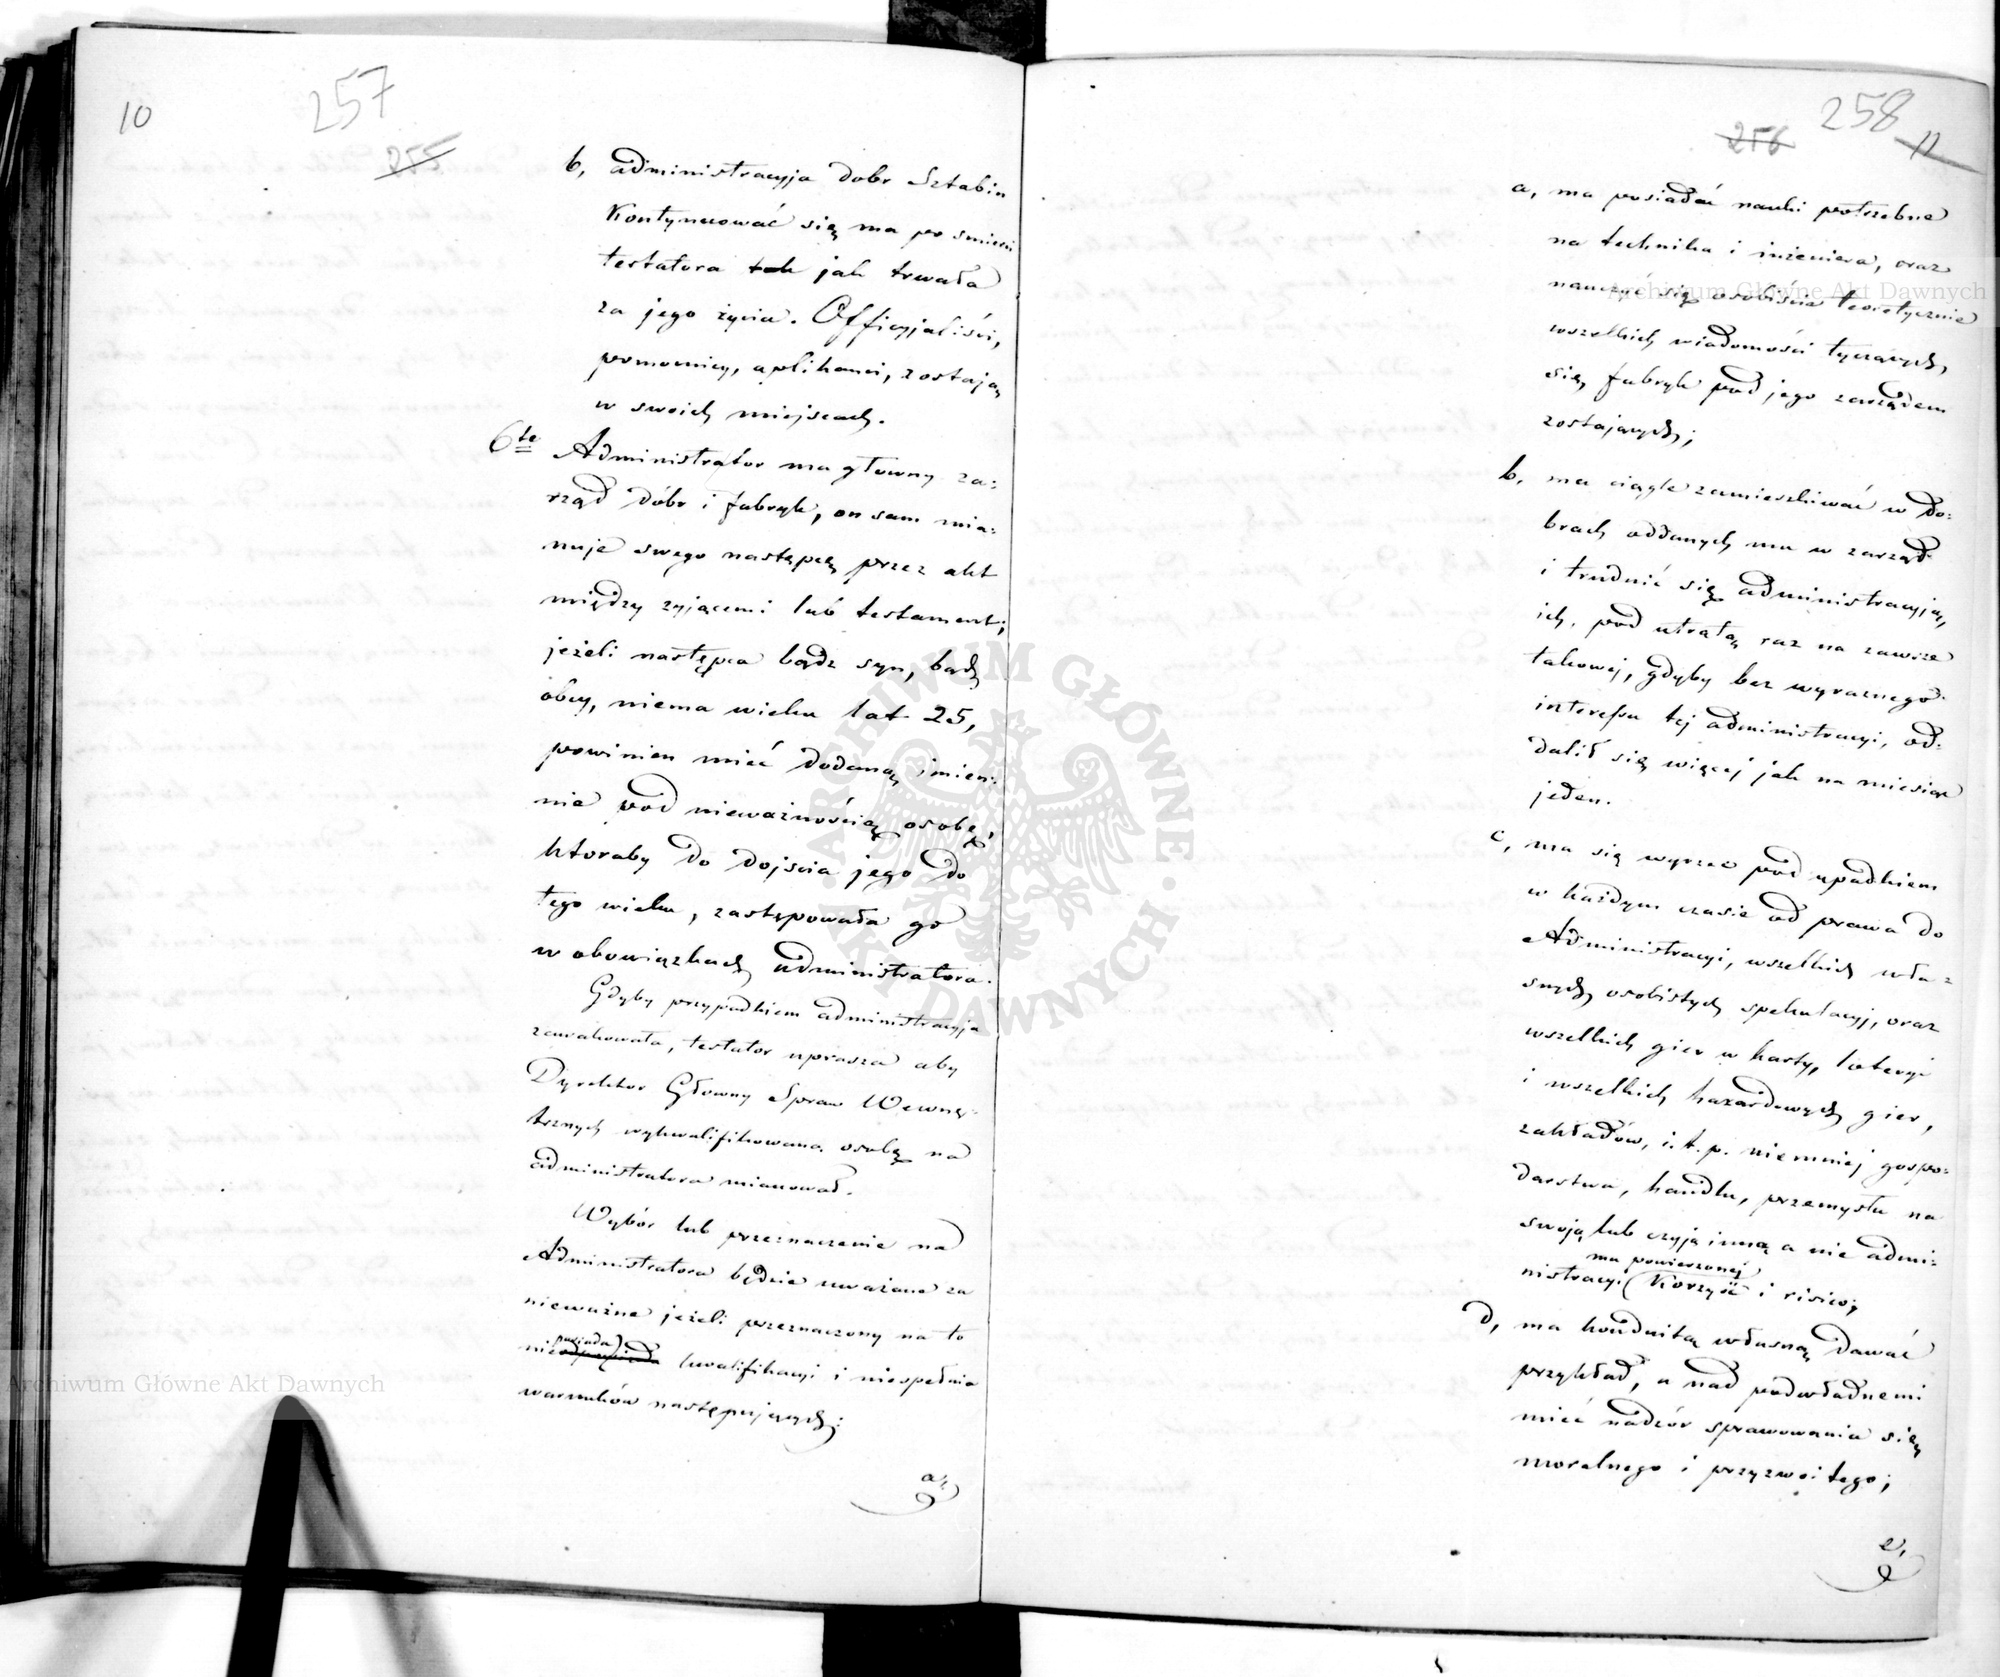 10
257
255
b, administracyja dobr Sztabin
Kontynuować się ma po smierci
testatora tak jak trwała
za jego życia. Officyjaliści,
pomocnicy, aplikanci, zostają
w swoich miejscach.
6te Administrator ma głowny za:
rząd dóbr i fabryk, on sam mia:
nuje swego następcę przez akt
między zyjącemi lub testament;
jeżeli następca bądz syn, bądz
obcy, niema wieku lat 25,
powinien mieć dodaną imien:
nie pod nieważnością osobę,
ktoraby do dojścia jego do
tego wieku, zastępowała go
w obowiązkach administratora.
Gdyby przypadkiem administracyja
zawakowała, testator uprasza aby
Dyrektor Głowny Spraw Wewnę:
trznych wykwalifikowaną osobę na
administratora mianował.
Wybór lub przeznaczenie na
Administratora będzie uważane za
nieważne jeżeli przeznaczony na to
nie posiada kwalifikacyi i niespełnia
warunków następujących:
a,
258
256
11
a, ma posiadać nauki potrzebne
na technika i inżeniera, oraz
nauczyć się osobiście teoretycznie
wszelkich wiadomości tyczących
się fabryk pod jego zarządem
zostających;
b, ma ciągle zamieszkiwać w do:
brach oddanych mu w zarząd
i trudnić się administracyją
ich, pod utratą raz na zawsze
takowej, gdyby bez wyraznego
interessu tej administracyi, od:
dalił się więcej jak na miesiąc
jeden.
c, ma się wyrzec pod upadkiem
w każdym czasie od prawa do
Administracyi, wszelkich wła:
snych osobistych spekulacyj, oraz
wszelkich gier w karty, loteryi
i wszelkich hazardowych gier,
zakładów, i.t.p. niemniej gospo:
darstwa, handlu, przemysłu na
swoją lub czyją inną a nie admi:
nistracyi mu powierzonej Korzyść i risico;
d, ma konduitą własną dawać
przykład, a nad podwładnemi
mieć nadzór sprawowania się
moralnego i przyzwoitego;
e,
Archiwum Główne Akt Dawnych
Archiwum Główne Akt Dawnych
ARCHIWUM GŁÓWNE AKT DAWNYCH